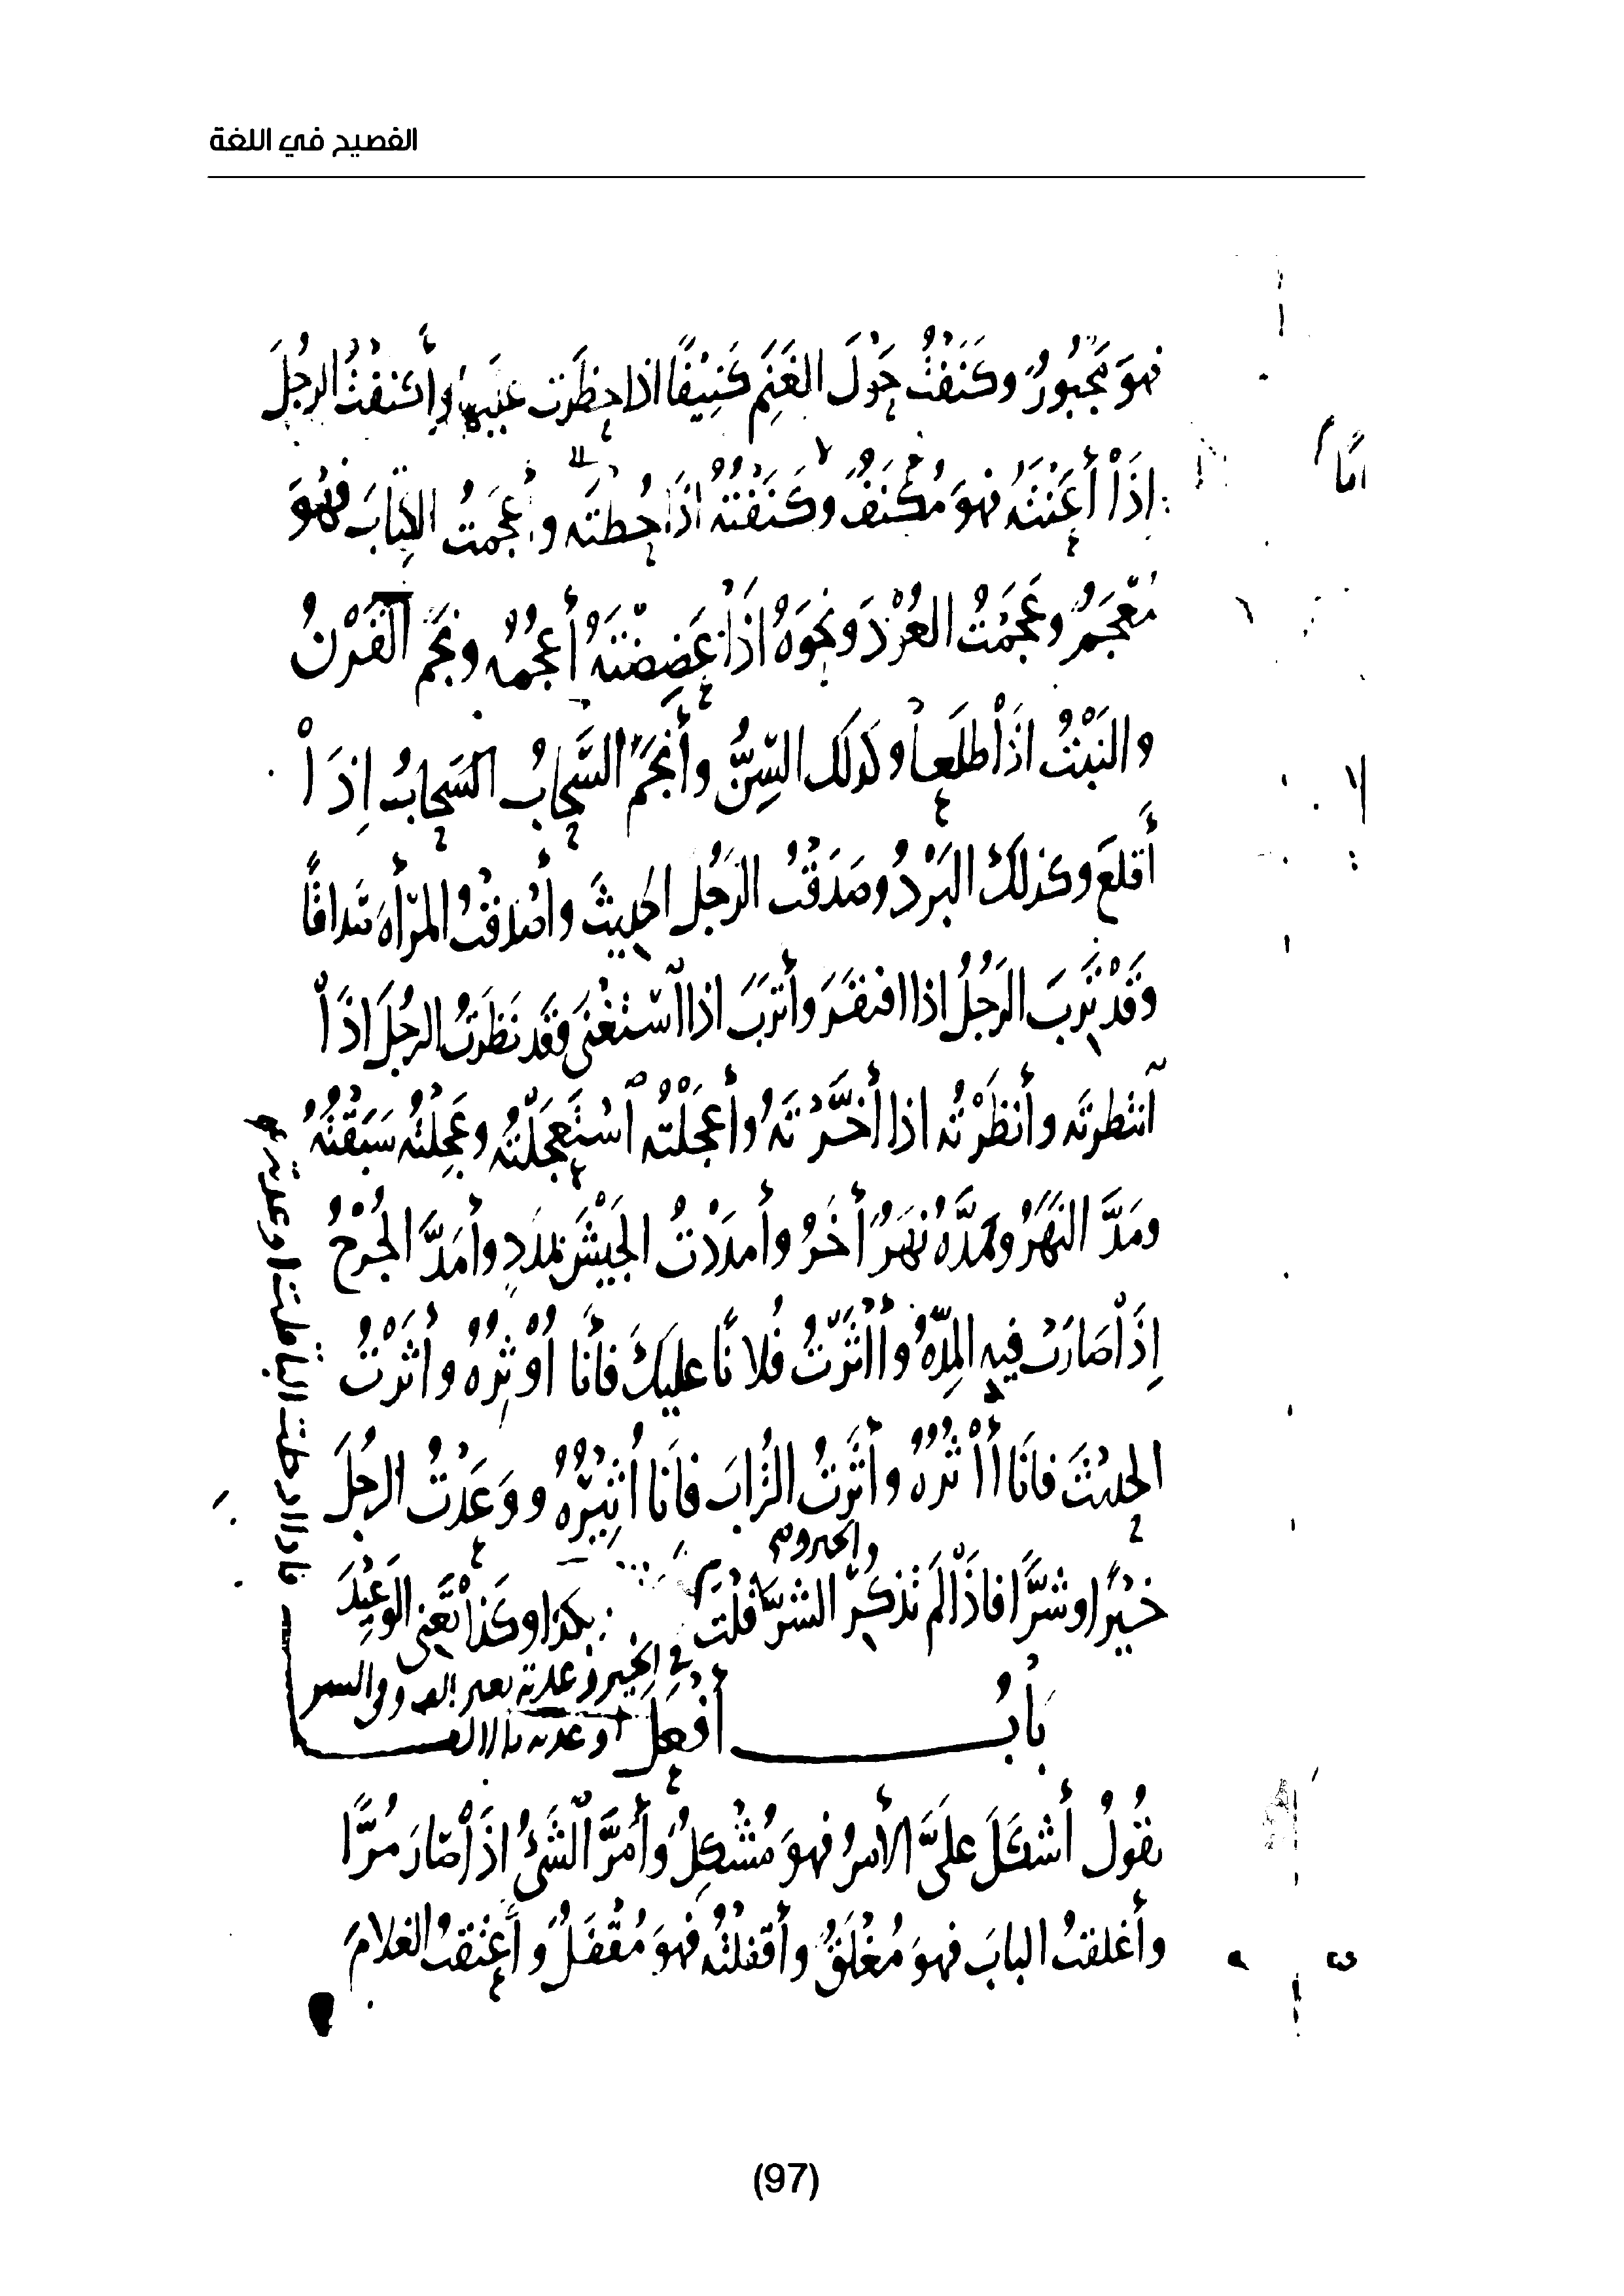 الفصيح في اللغة
فهوَ مَجْبُورٌ وكَنَفْتُ حَوْلَ الغَنَمِ كَنِيْفًا اذا حظَرت عليها وأكنفْتُ الرجُلَ
إذَا أعَنْتَهُ فهوَ مُكْنَفٌ وكَنَفْتُهُ اذَا حُطتَه وأعجَمتُ الكِتابَ فهُوَ
مُعْجَمٌ وعَجَمْتُ العُوْدَ ونحْوَهُ اذَا عَضِضْتَهُ أعجُمُه ونَجَمَ القَرْنُ
والنَبْتُ اذَا طلَعا وكذلك السِّنُّ وأنجَمَ السَّحابُ السَحابُ إذَا
أَقلَعَ وكذلكَ البَرْدُ وصَدَقْتُ الرَجُلَ الحديثَ وأصْدَقْتُ المَرْأةَ صَداقًا
وَقَدْ تَرِبَ الرَجُلُ اذا افتقَرَ وأترَبَ اذا اسْتغْنَى وقَد نَظَرتُ الرجُلَ اذَا
انتظرتَه وأنظَرْتُه اذا أخَّرْتَهُ وأعجَلْتُه اسْتَعجَلْتُه وعَجِلْتُه سَبَقْتُهُ
ومَدَّ النَهَرُ ومَدَّهُ نهَرٌ أخَرُ وأمدَدْتُ الجَيْشَ بمَدَدٍ وأمَدَّ الجُرْحُ
إذَا صَارَتْ فيهِ المِدَّةُ وأاثَرْتُ فُلانًا عليكَ فأنا أُوْثِرُهُ وأثَرْتُ
الحديْثَ فانَا أاثُرُهُ وأثَرْتُ التُرابَ فانَا أُثِيْرُهُ ووَعَدْتُ الرجُلَ
والجرومى
خَيْرًا وشَرًّا فاذَا لَم تذكُرِ الشَرَّ قلْتَ بكذا وكذَا تَعْنى الوَعِيْدَ
في الخير وعدته بغير الف وفى الشر
بَابُ أفْعَلَ اوعدته بالالف
تقُولُ أشكَلَ علىَّ الأمرُ فهوَ مُشْكِلٌ وأمَرَّ الشَىْءُ اذَا صَارَ مُرًّا
وأغلقتُ البابَ فهوَ مُغْلَقٌ وأقفلْتُهُ فهوَ مُقْفَلٌ وأعتقتُ الغلامَ
(97)